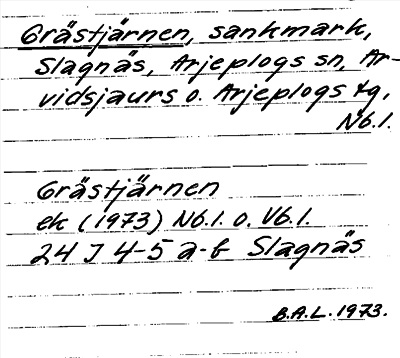 Grästjärnen, sankmark,
Slagnäs, Arjeplogs sn, Ar-
vidsjaurs o. Arjeplogs tg,
Nb.l.
Grästjärnen
ek (1973) Nb.l. o. Vb.l.
24 J 4-5 a-b Slagnäs
B.A.L. 1973.